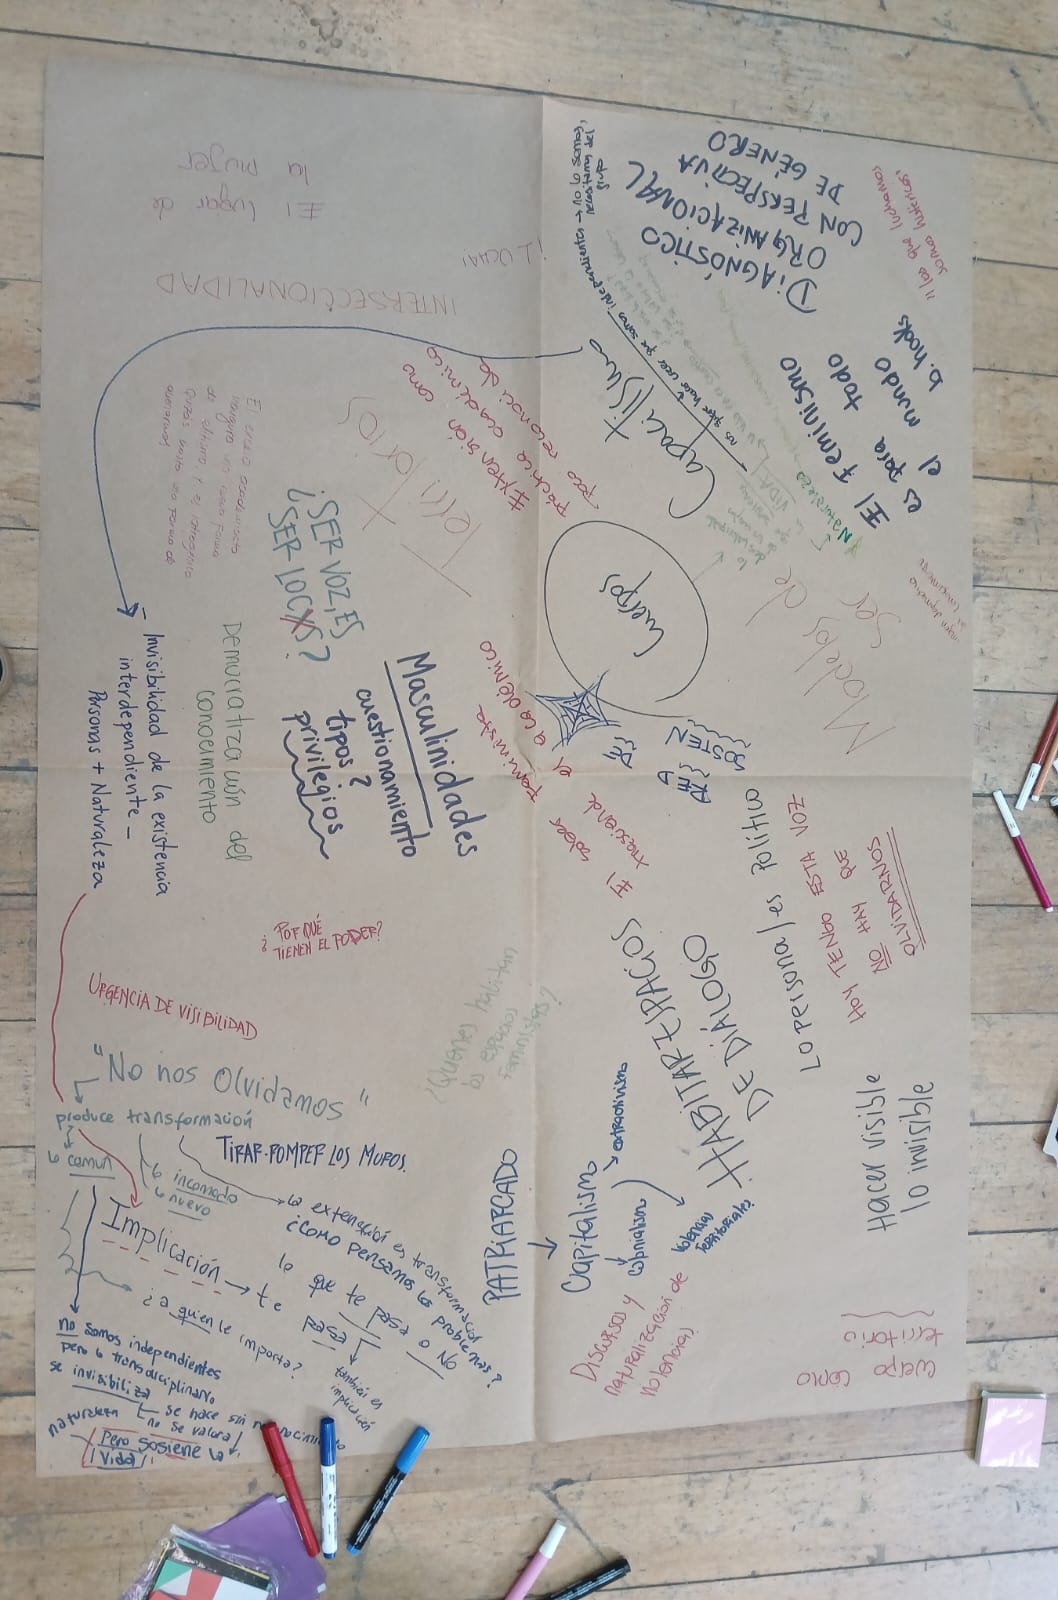 El lugar de
la mujer
INTERSECCIONALIDAD
¡LUCHA!
nos quiere hacer ver que somos independientes → no lo somos,
necesitamos del
grupo
DIAGNÓSTICO
ORGANIZACIONAL
CON PERSPECTIVA
DE GÉNERO
"las que luchamos
somos histéricas"
Capacitismo
El Feminismo
es para todo
el mundo
b. hooks
Naturaleza
VIDA
Extensión como
práctica académico
poco reconocida
Territorios
¿SER VOZ, ES
¿SER LOCXS?
Cuerpos
Modelos de
ser
DEMOCRATIZACIÓN del
conocimiento
Invisibilidad de la existencia
interdependiente_
Personas + Naturaleza
Masculinidades
cuestionamiento
tipos?
privilegios
RED
DE
SOSTEN
El saber feminista
trasciende el académico
¿POR QUÉ
TIENEN EL PODER?
URGENCIA DE VISIBILIDAD
¿Quiénes habitan
los espacios
feministas?
HABITAR ESPACIOS
DE DIÁLOGO
Lo personal es político
HOY TENGO ESTA VOZ
NO HAY QUE
OLVIDARNOS
Hacer visible
lo invisible
"No nos Olvidamos"
produce transformación
lo común
lo incomodo
lo nuevo
TIRAR-ROMPER LOS MUROS.
la extensión es transformación
¿Cómo pensamos los problemas?
Implicación → te
pasa
lo que te pasa o NO
también es
implicación
¿a quien le importa?
no somos independientes
pero lo transdisciplinario
se invisibiliza
se hace sin reconocimiento
no se valora
naturaleza
Pero sostiene la
¡Vida!
PATRIARCADO
Capitalismo
extractivismo
colonialismo
violencias
territoriales.
Discursos y
naturalización de
violencias
cuerpo como
territorio